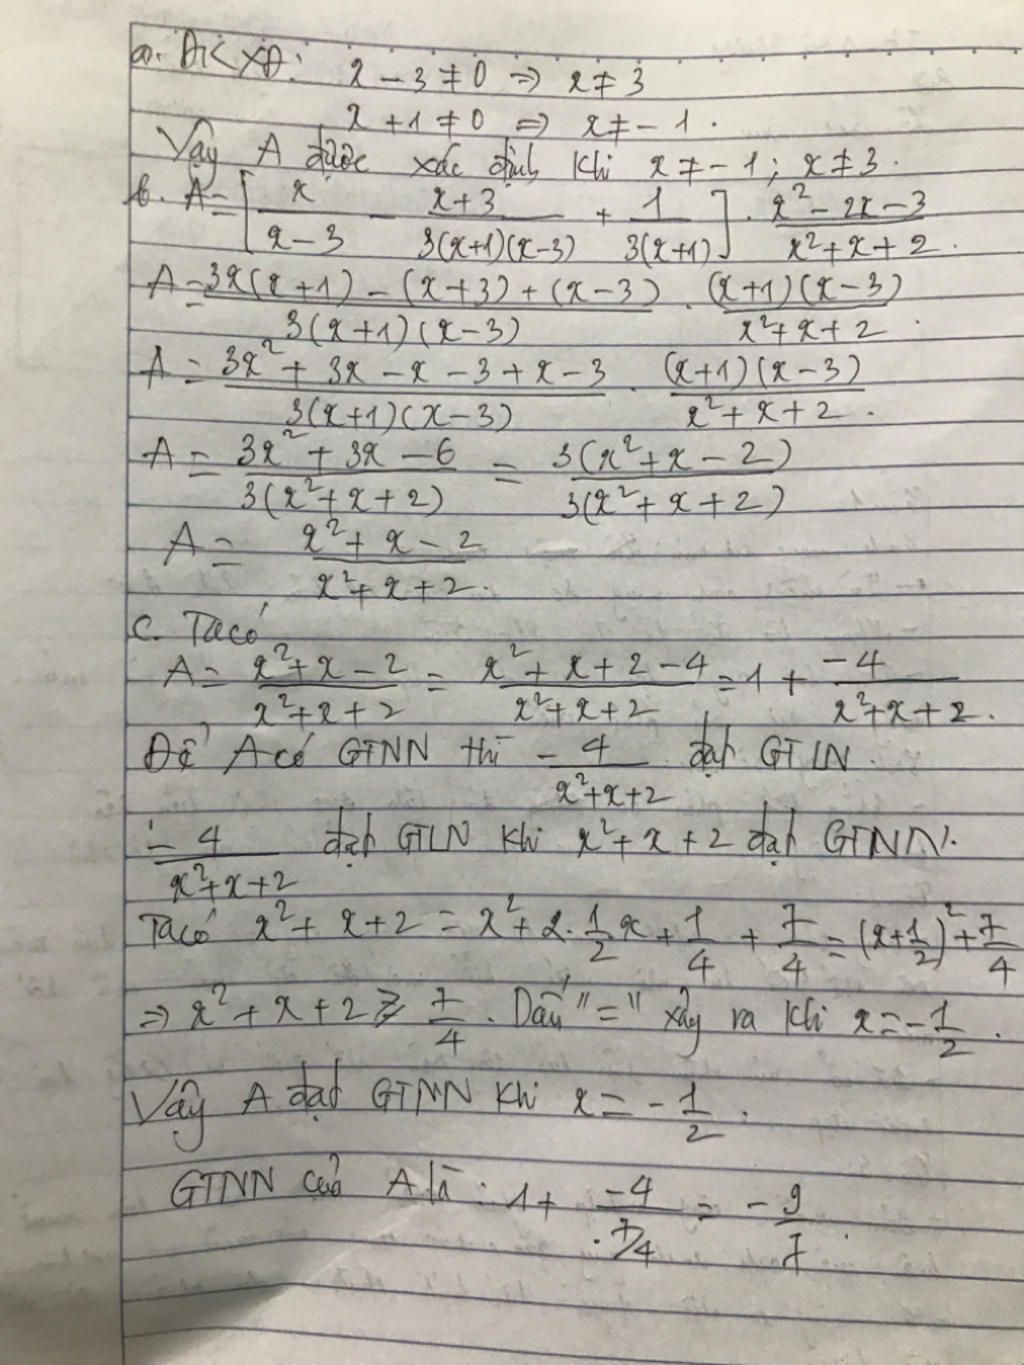 a. ĐKXĐ: x - 3 ≠ 0 => x ≠ 3
x + 1 ≠ 0 => x ≠ - 1.
Vậy A được xác định khi x ≠ - 1; x ≠ 3.
b. A = [x/(x-3) - (x+3)/(3(x+1)(x-3)) + 1/(3(x+1))] . (x² - 2x - 3)/(x² + x + 2).
A = (3x(x+1) - (x+3) + (x-3))/(3(x+1)(x-3)) . ((x+1)(x-3))/(x² + x + 2).
A = (3x² + 3x - x - 3 + x - 3)/(3(x+1)(x-3)) . ((x+1)(x-3))/(x² + x + 2).
A = (3x² + 3x - 6)/(3(x² + x + 2)) = (3(x² + x - 2))/(3(x² + x + 2))
A = (x² + x - 2)/(x² + x + 2).
c. Ta có
A = (x² + x - 2)/(x² + x + 2) = (x² + x + 2 - 4)/(x² + x + 2) = 1 + (-4)/(x² + x + 2).
Để A có GTNN thì - 4/(x² + x + 2) đạt GTLN.
- 4/(x² + x + 2) đạt GTLN khi x² + x + 2 đạt GTNN.
Ta có x² + x + 2 = x² + 2. 1/2 x + 1/4 + 7/4 = (x + 1/2)² + 7/4
=> x² + x + 2 ≥ 7/4. Dấu "=" xảy ra khi x = - 1/2.
Vậy A đạt GTNN khi x = - 1/2.
GTNN của A là: 1 + (-4)/(7/4) = - 9/7.